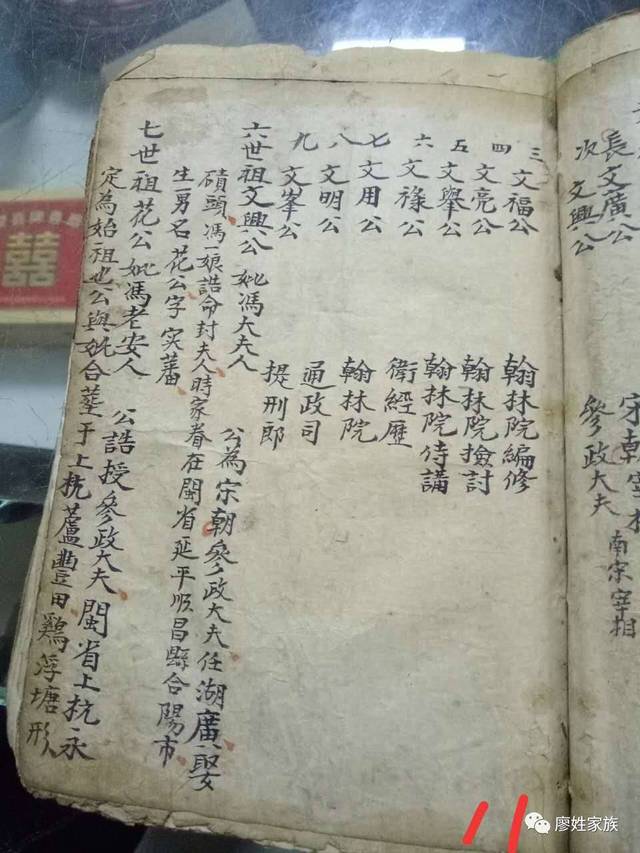 長文廣公 宋朝宰
南宗宰相
次文興公 參政大夫
三 文福公 翰林院編修
四 文亮公 翰林院撿討
五 文舉公 翰林院侍講
六 文祿公 衛經歷
七 文用公 翰林院
八 文明公 通政司
九 文峯公 提刑郎
六世祖文興公 妣馮大夫人 公為宋朝參政大夫任湖廣娶
磧頭馮一娘誥命封夫人時家眷在閩省延平順昌縣合陽市
生一男名花公字实蕃
七世祖花公妣馮老安人 公誥授參政大夫閩省上抗永
定為始祖也公與妣合塟于上抗蘆豐田鷄浮塘形
囍
廖姓家族